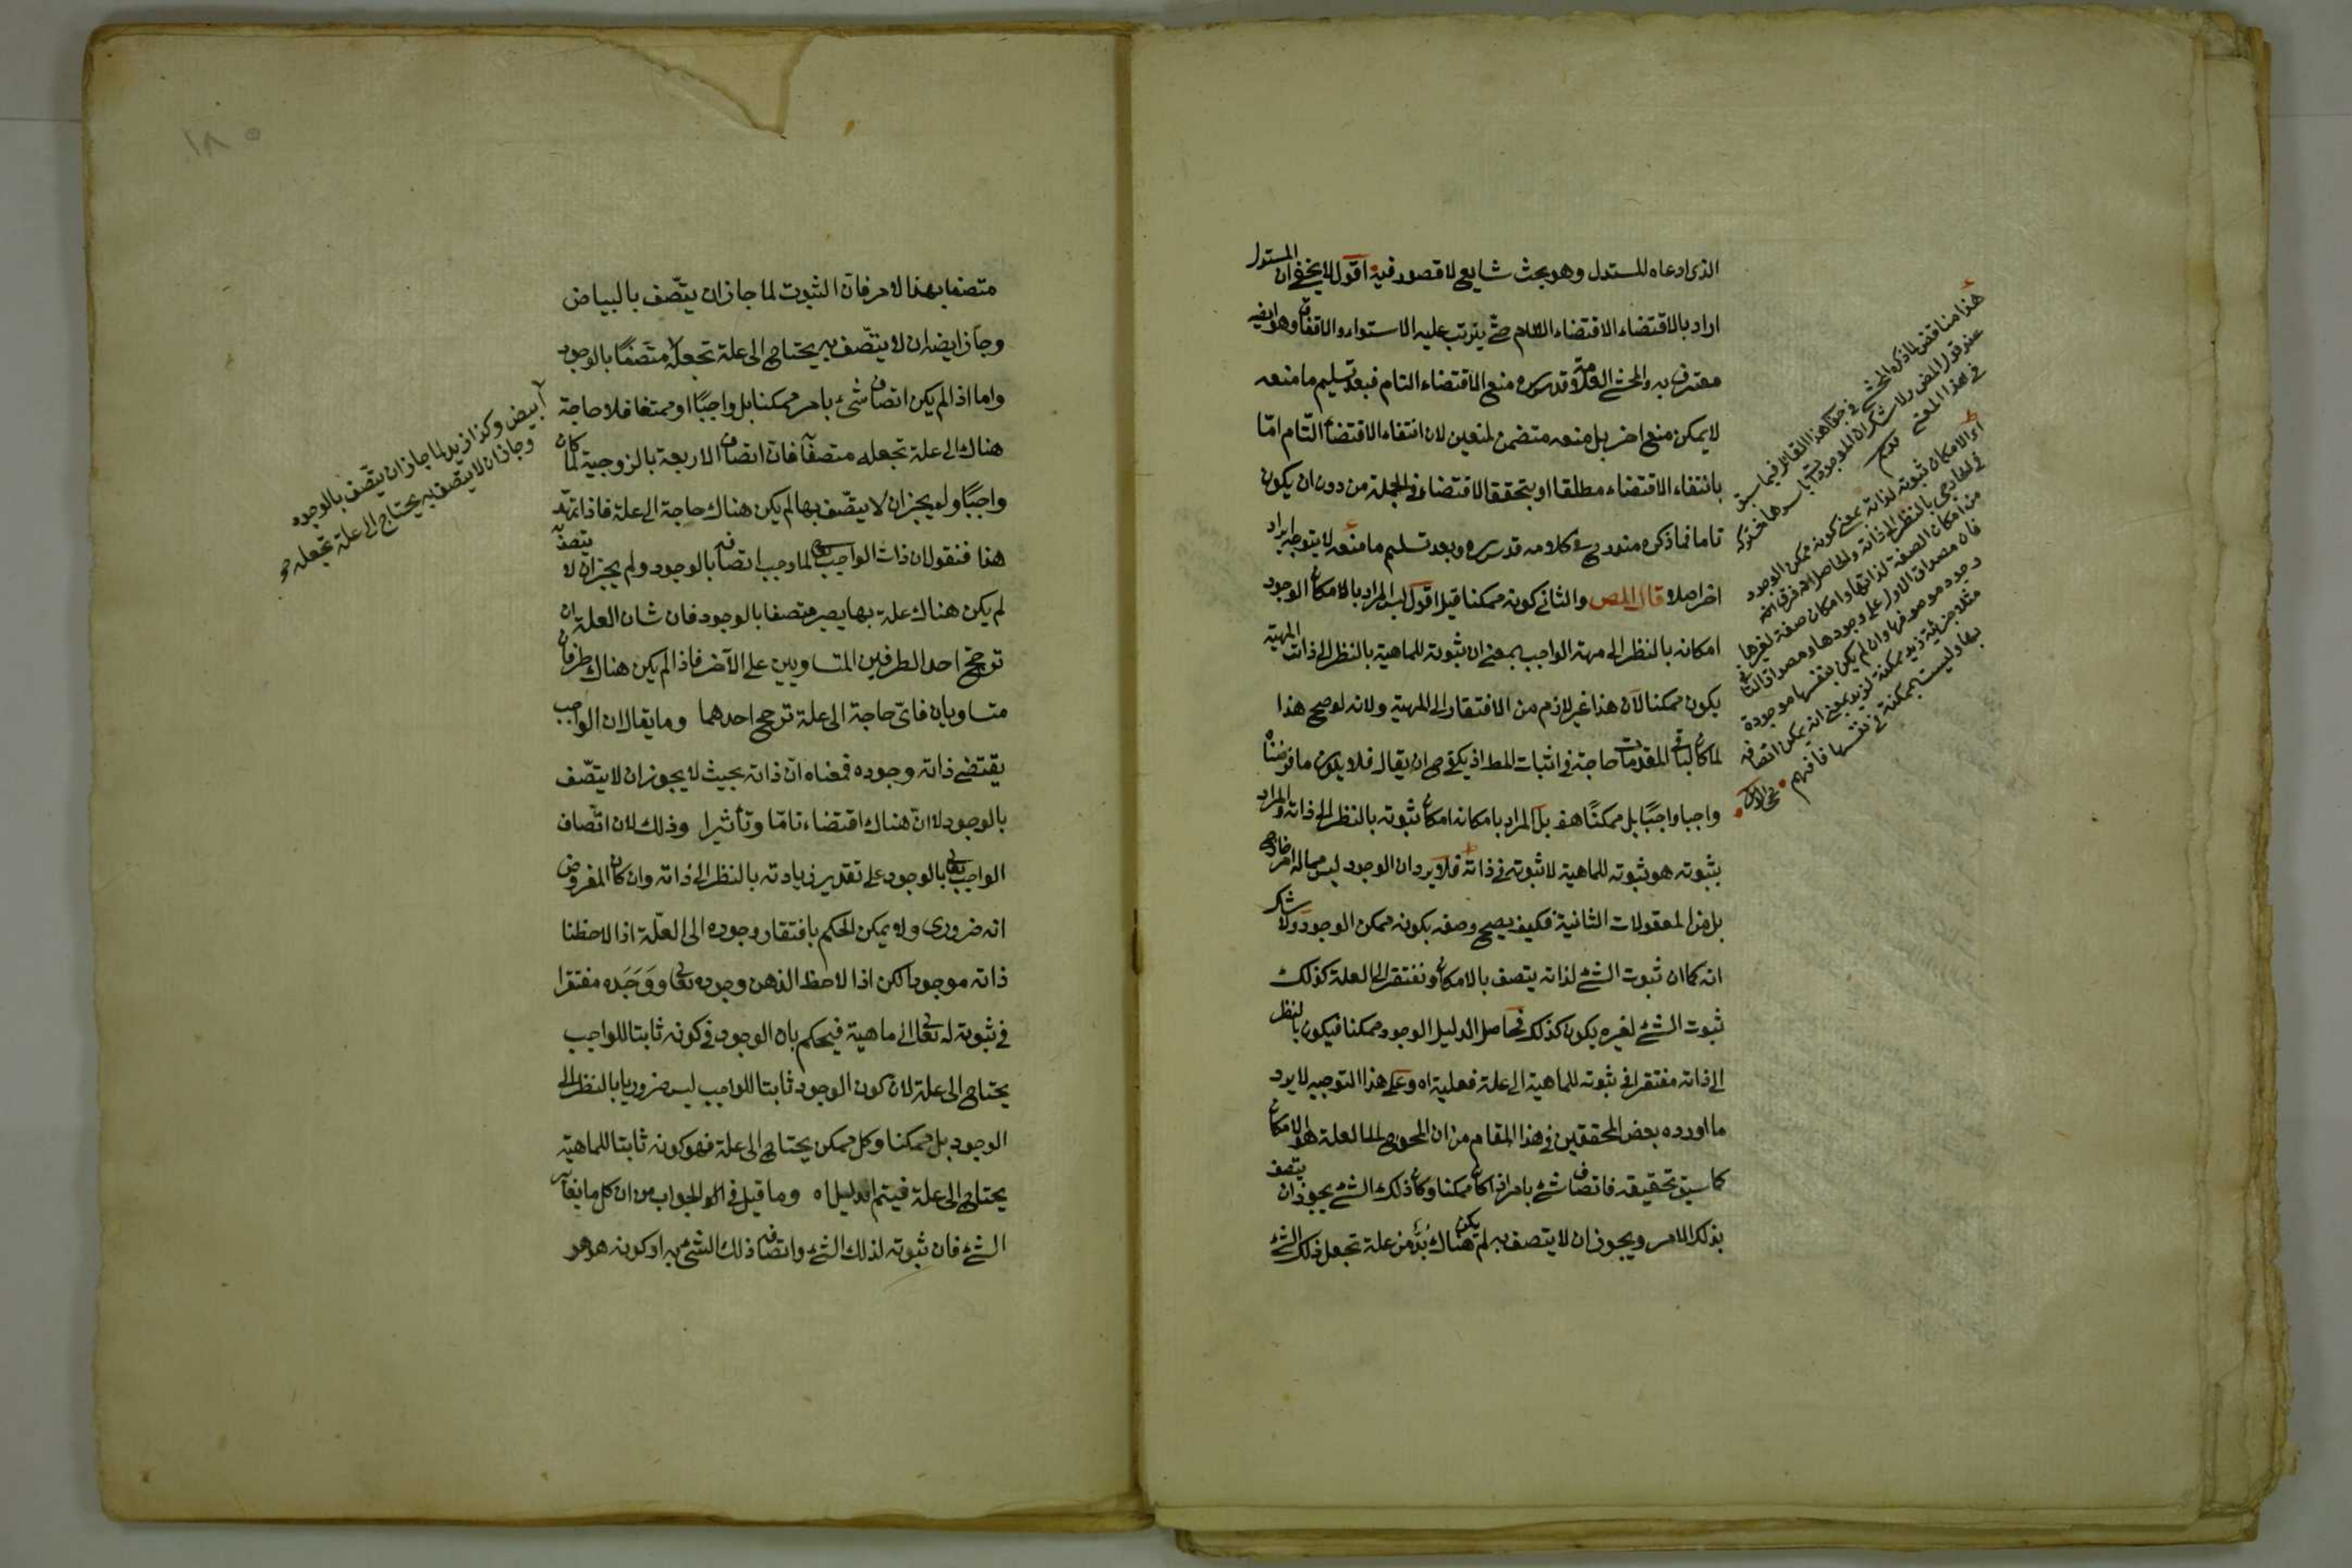 الذى ادعاه المستدل وهو بحث شايع لا قصور فيه اقول لا يخفى ان المستدل
اراد بالاقتضاء الاقتضاء التام حتى يترتب عليه الاستواء والاتفاق وهو ايضا
معترف به والمحشى العلامة قدس سره منع الاقتضاء التام فبعد تسليم ما منعه
لا يمكن منع اخر بل منعه متضمن لمنعين لان انتفاء الاقتضاء التام امّا
بانتفاء الاقتضاء مطلقا او بتحقق الاقتضاء فى الجملة من دون ان يكون
تاما فما ذكره مندرج فى كلامه قدس سره وبعد تسليم ما منعه لا يتوجه ايراد
اخر اصلا قال المص والثانى كونه ممكنا قيل اقول ليس المراد بالامكان الوجود
امكانه بالنظر الى مهية الواجب بمعنى ان ثبوته للماهية بالنظر الى ذات المهية
يكون ممكنا لان هذا غير لازم من الافتقار الى المهية ولانه لو صح هذا
لما كان لباقى المقدمات حاجة فى اثبات المط اذ يكفى ح ان يقال فلا يكون ما فرضناه
واجبا واجبًا بل ممكنًا هف بل المراد بامكانه امكان ثبوته بالنظر الى ذاته والمراد
بثبوته هو ثبوته للماهية لا ثبوته فى ذاته فلا يرد ان الوجود ليس مما له امر خارجى
بل من المعقولات الثانية فكيف يصح وصفه بكونه ممكن الوجود ولا شك
انه كما ان ثبوت الشئ لذاته يتصف بالامكان وتفتقر الى العلة كذلك
ثبوت الشئ لغيره يكون كذلك فحاصل الدليل الوجود ممكنا فيكون بالنظر
الى ذاته مفتقرا فى ثبوته للماهية الى علة فعلية اه وعلى هذا التوجيه لا يرد
ما اورده بعض المحققين فى هذا المقام من ان المحوج الى العلة هو الامكان
كما سبق تحقيقه فاتصاف شئ بامر اذا كان ممكنا وكان ذلك الشئ يجوز ان يتصف
بذلك الامر ويجوز ان لا يتصف به لم يكن هناك بُدّ من علة تجعل ذلك الشئ
هذا مناقض لما ذكره المحشى فى هذا القائل فيما سبق
عند قول المص ولا شك ان الموجودات باسرها مشتركة
فى هذا المعنى
اى الامكان ثبوته لذاته بمعنى كونه ممكن الوجود
فى الخارج بالنظر الى ذاته والحاصل انه فرق
من امكان الصفة لذاتها وامكان صفة لغيرها
فان مصداق الاول على وجودها ومصداق الثانى
وجود موصوفها وان لم يكن بنفسها موجودة
مثلا جزئية زيد ممكنة لزيد بمعنى انه يمكن اتصافه
بها وليست بممكنة فى نفسها فافهم
١٨٥
متصفا بهذا الامر فان الثبوت لما جاز ان يتّصف بالبياض
وجاز ايضا ان لا يتّصف به يحتاج الى علة تجعله متصفًا بالوجود
واما اذا لم يكن اتصاف شئ بامر ممكنا بل واجبًا او ممتنعا فلا حاجة
هناك الى علة تجعله متصفًا فان اتصاف الاربعة بالزوجية لما كان
واجبًا ولم يجز ان لا يتّصف بها لم يكن هناك حاجة الى علة فاذا تمهد
هذا فنقول ان ذات الواجب تعالى لما وجب اتصافه بالوجود ولم يجز ان لا يتصف
لم يكن هناك علة بها يصير متصفا بالوجود فان شان العلة ان
ترجح احد الطرفين المتساويين على الآخر فاذا لم يكن هناك طرفان
متساويان فاىّ حاجة الى علة ترجح احدهما وما يقال ان الواجب
يقتضى ذاته وجوده فمعناه انّ ذاته بحيث لا يجوز ان لا يتّصف
بالوجود لا انّ هناك اقتضاء تامّا وتأثيرا وذلك لان اتّصاف
الواجب تعالى بالوجود على تقدير زيادته بالنظر الى ذاته وان كان المفروض
انه ضرورى ولا يمكن الحكم بافتقار وجوده الى العلّة اذا لاحظنا
ذاته موجودا لكن اذا لاحظ الذهن وجوده تعالى ووَجَدَه مفتقرا
فى ثبوته له تعالى الى ماهية فيحكم بان الوجود فى كونه ثابتا للواجب
يحتاج الى علة لان كون الوجود ثابتا للواجب ليس ضروريا بالنظر الى
الوجود بل ممكنا وكل ممكن يحتاج الى علة فهو كونه ثابتا للماهية
يحتاج الى علة فيتم الدليل اه وما قيل فى الجواب من ان كل ما يغاير
الشئ فان ثبوته لذلك الشئ واتصاف ذلك الشئ به او كونه هو هو
أبيض وكذا زيد لما جاز ان يتّصف بالوجود
وجاز ان لا يتّصف به يحتاج الى علة تجعله